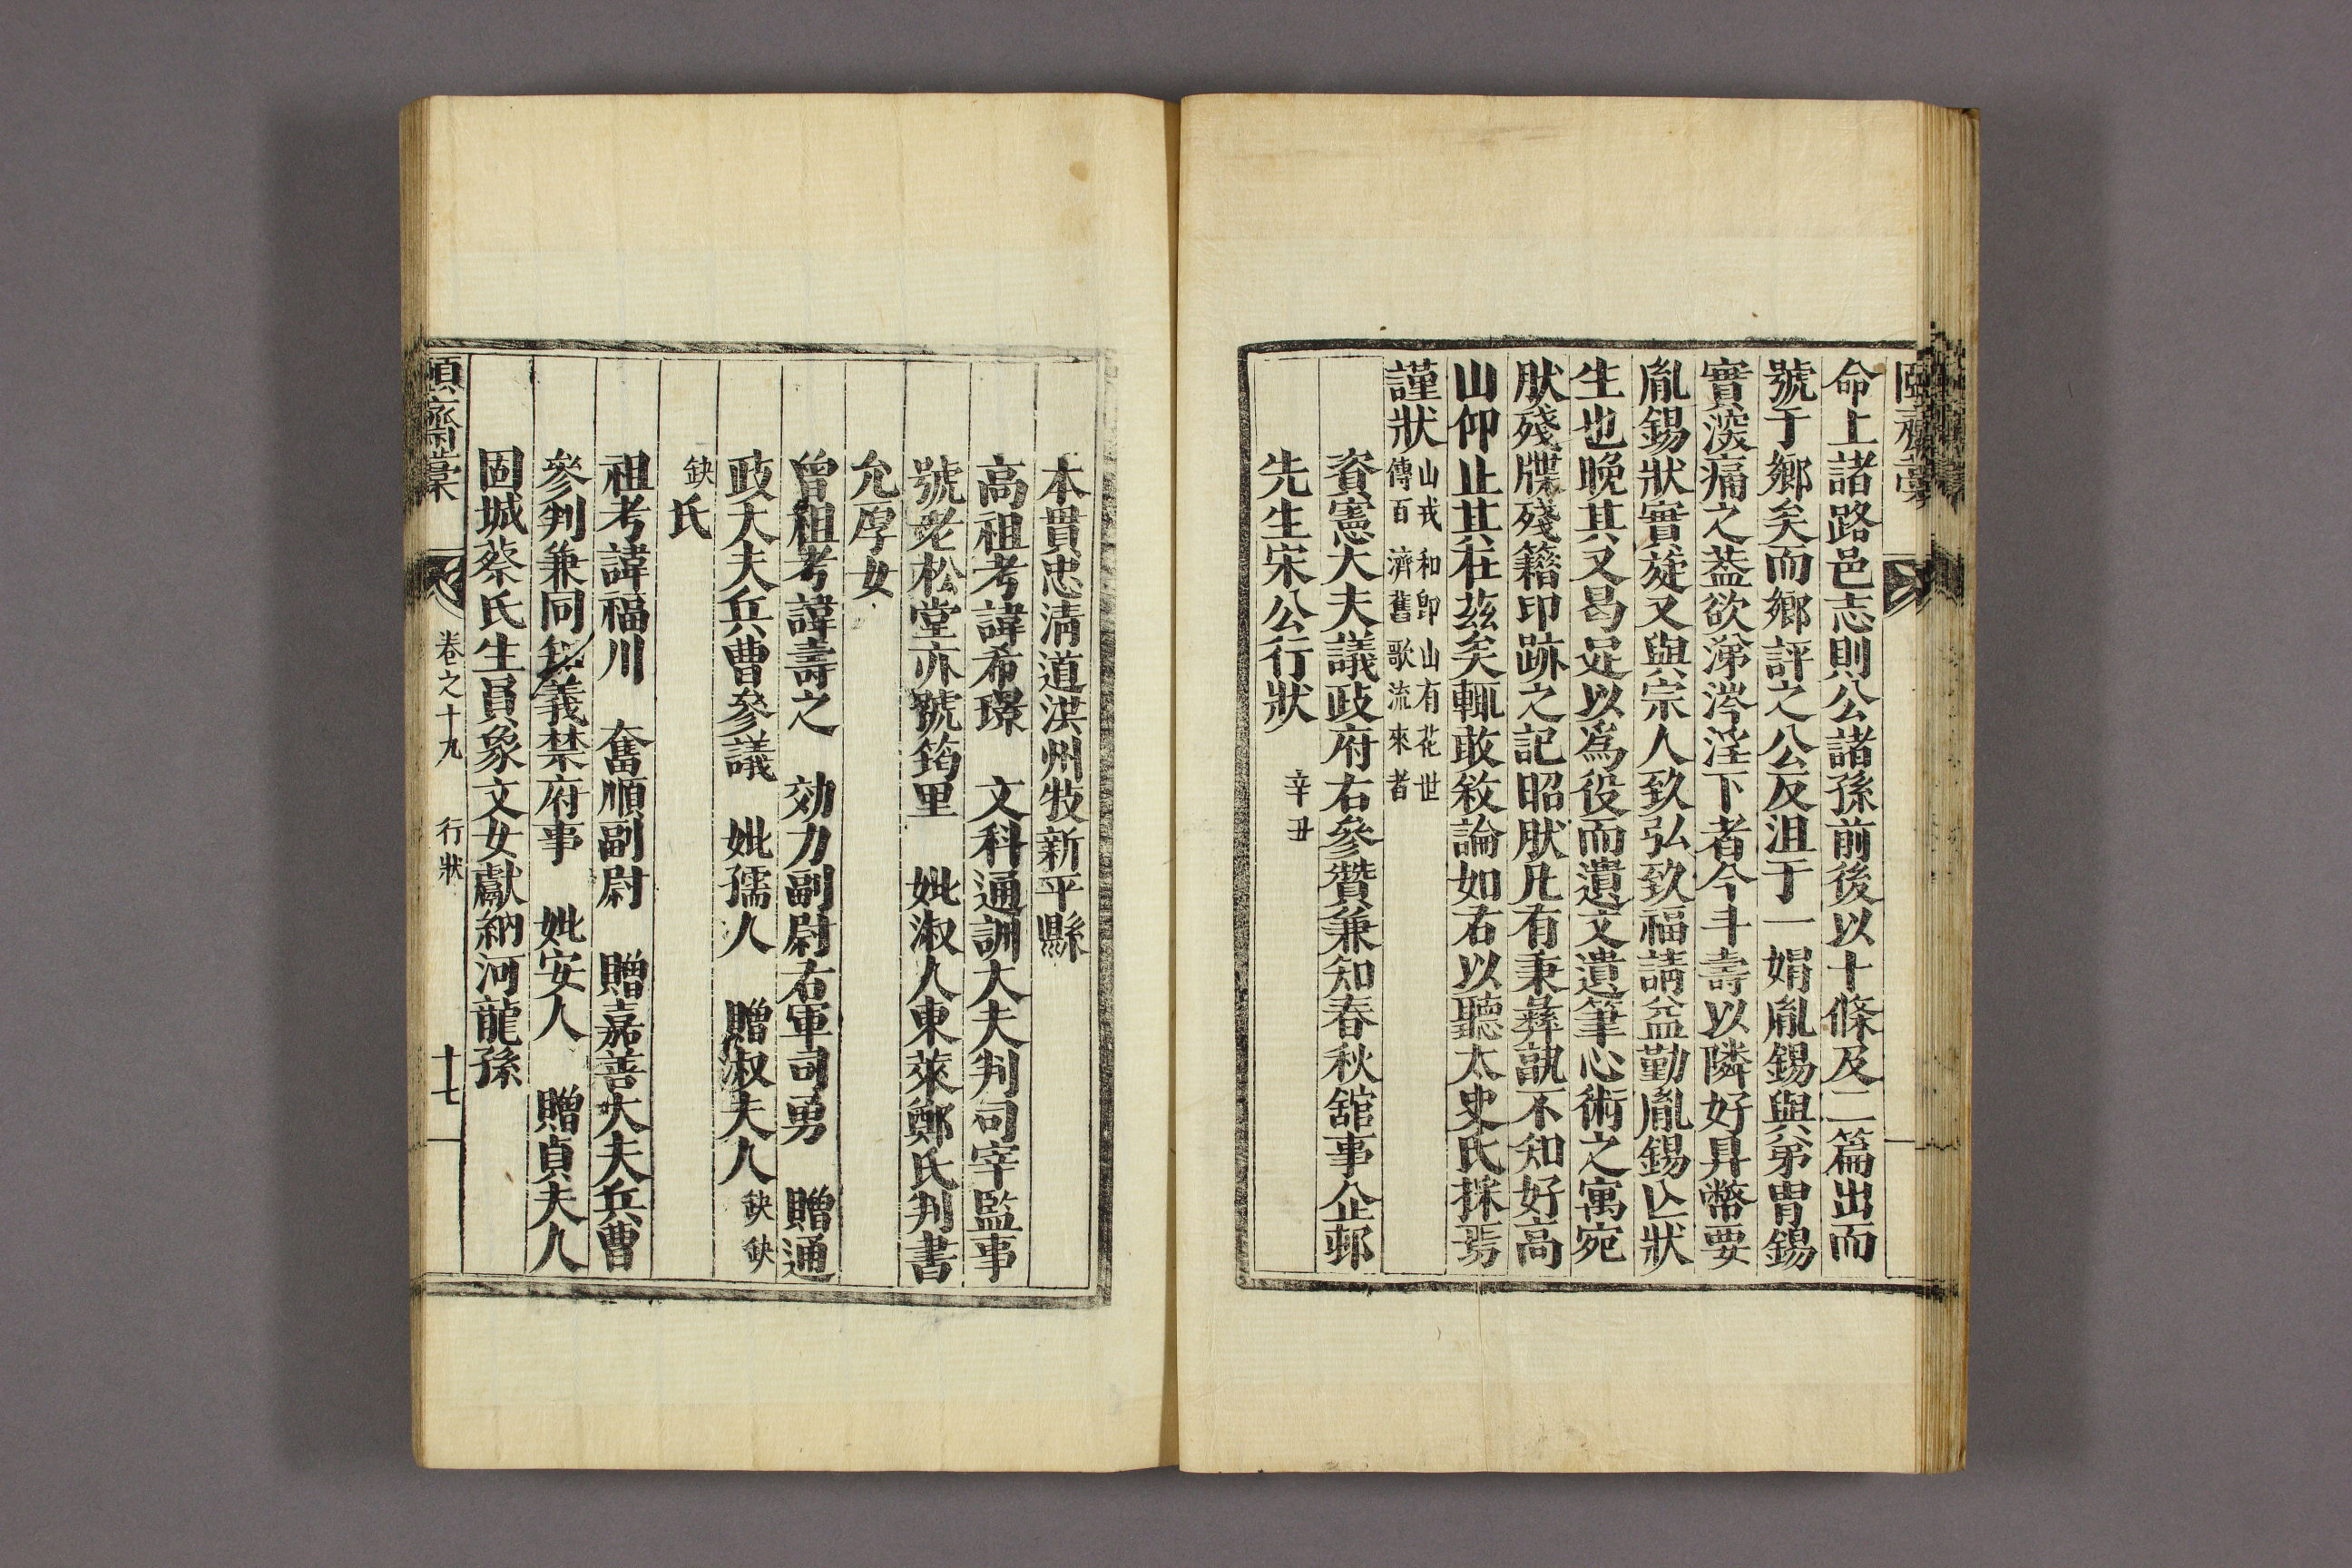 頤齋藁
命上諸路邑志則公諸孫前後以十條及二篇出而
號于鄉矣而鄉評之公反沮于一娟胤錫與弟胄錫
實深痛之葢欲涕滂淫下者今斗壽以隣好具幣要
胤錫狀實旋又與宗人致弘致福請益勤胤錫亾狀
生也晚其又曷足以爲役而遺文遺筆心術之寓宛
肰殘牒殘籍印跡之記昭肰凡有秉彝孰不知好高
山仰止其在茲矣輒敢敘論如右以聽太史氏採焉
謹狀 山戎和卽山有花世
傳百濟舊歌流來者
資憲大夫議政府右參贊兼知春秋館事企邨
先生宋公行狀 辛丑
本貫忠淸道洪州牧新平縣
高祖考諱希璟 文科通訓大夫判司宰監事
號老松堂亦號筠里 妣淑人東萊鄭氏判書
允厚女
曾祖考諱壽之 効力副尉右軍司勇 贈通
政大夫兵曹參議 妣孺人 贈淑夫人缺缺
缺氏
祖考諱福川 奮順副尉 贈嘉善大夫兵曹
參判兼同知義禁府事 妣安人 贈貞夫人
固城蔡氏生員象文女獻納河龍孫
頤齋藁 卷之十九 行狀 十七